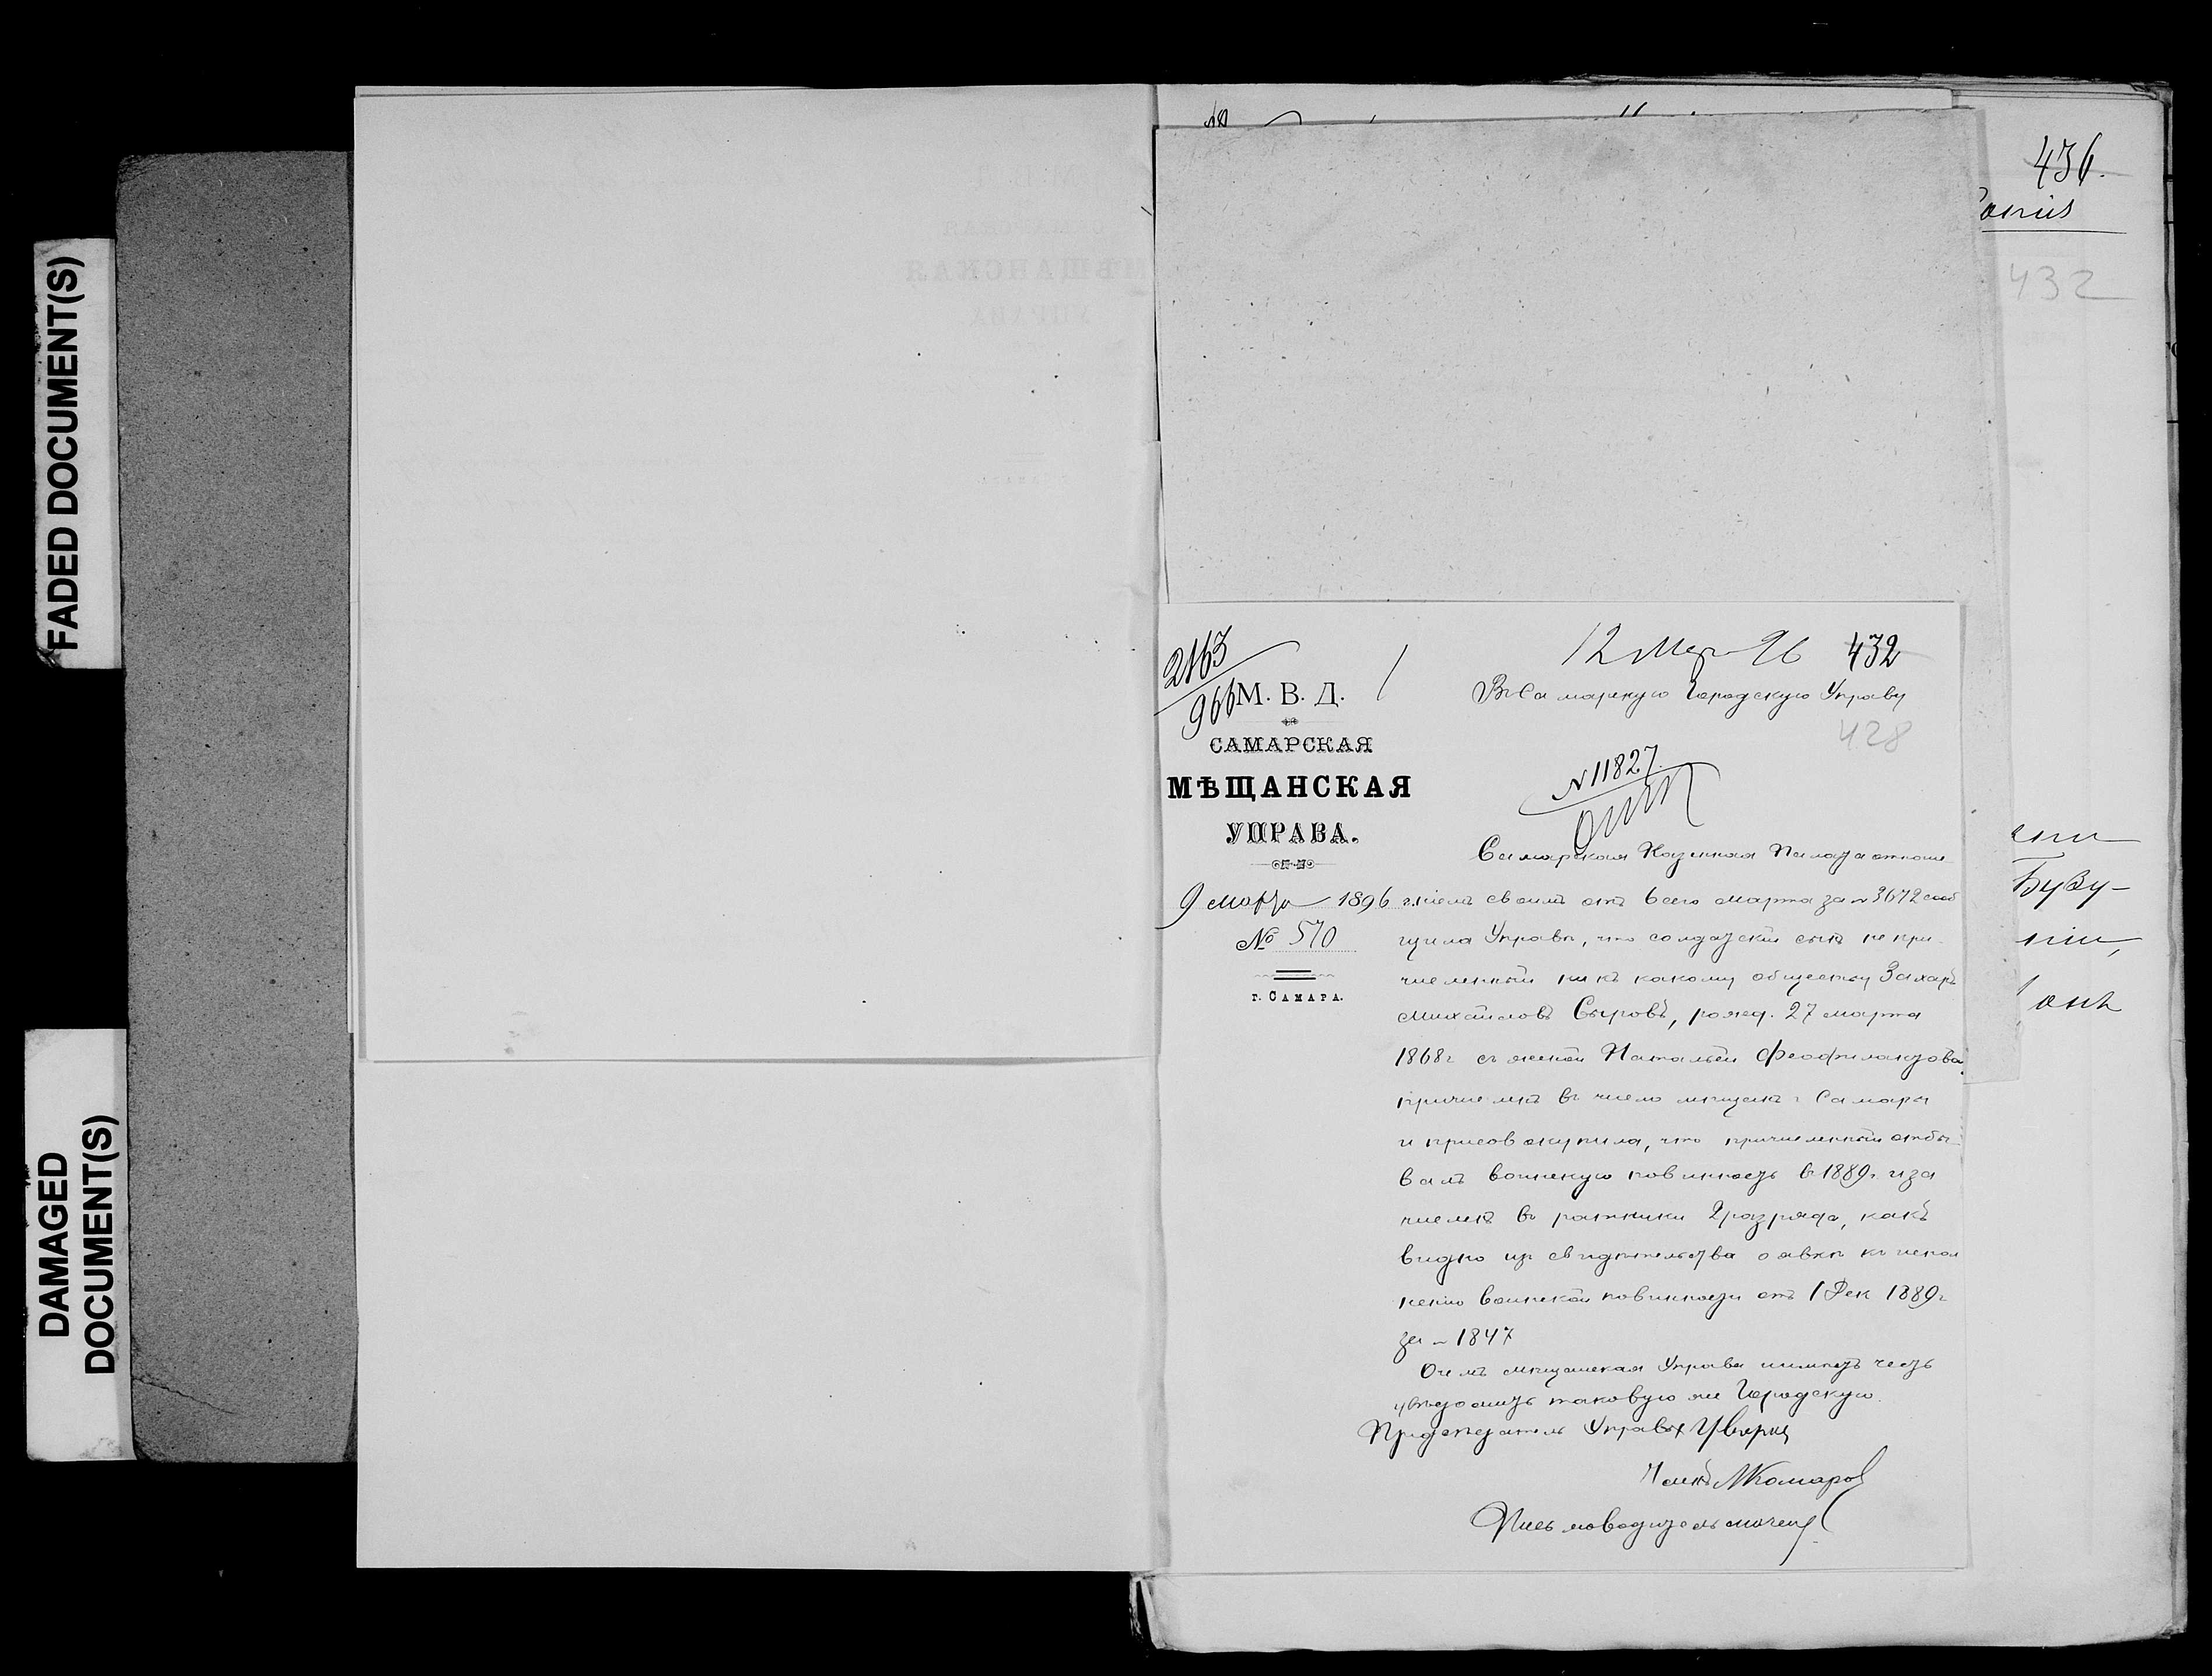 FADED DOCUMENT(S)
DAMAGED
DOCUMENT(S)
436.
432
Бузу-
2163
966
12 Мар 96
432
М. В. Д.
САМАРСКАЯ
МѢЩАНСКАЯ
УПРАВА.
9 марта 1896 г.
№ 570
г. САМАРА.
Въ Самарскую Городскую Управу
428
N 11827
Самарская Казенная Палата отноше
ніемъ своимъ отъ 6 сего марта за № 3672 сооб
щила Управѣ, что солдатскій сынъ не при-
численный ни къ какому обществу Захаръ
Михайловъ Сыровъ, рожд. 27 марта
1868 г съ женой Натальей Феофилактовой
причисленъ въ число мѣщанъ г Самары
и присовокупила, что причисленный отбы-
валъ воинскую повинность в 1889 г. и за
численъ въ ратники 2 разряда, какъ
видно изъ свидѣтельства о явкѣ къ испол
ненію воинской повинности отъ 1 Дек 1889 г
за № 1847
О чемъ мѣщанская Управа имѣетъ честь
увѣдомить таковую же Городскую.
Предсѣдатель Управы
Членъ МКомаров
Письмоводитель